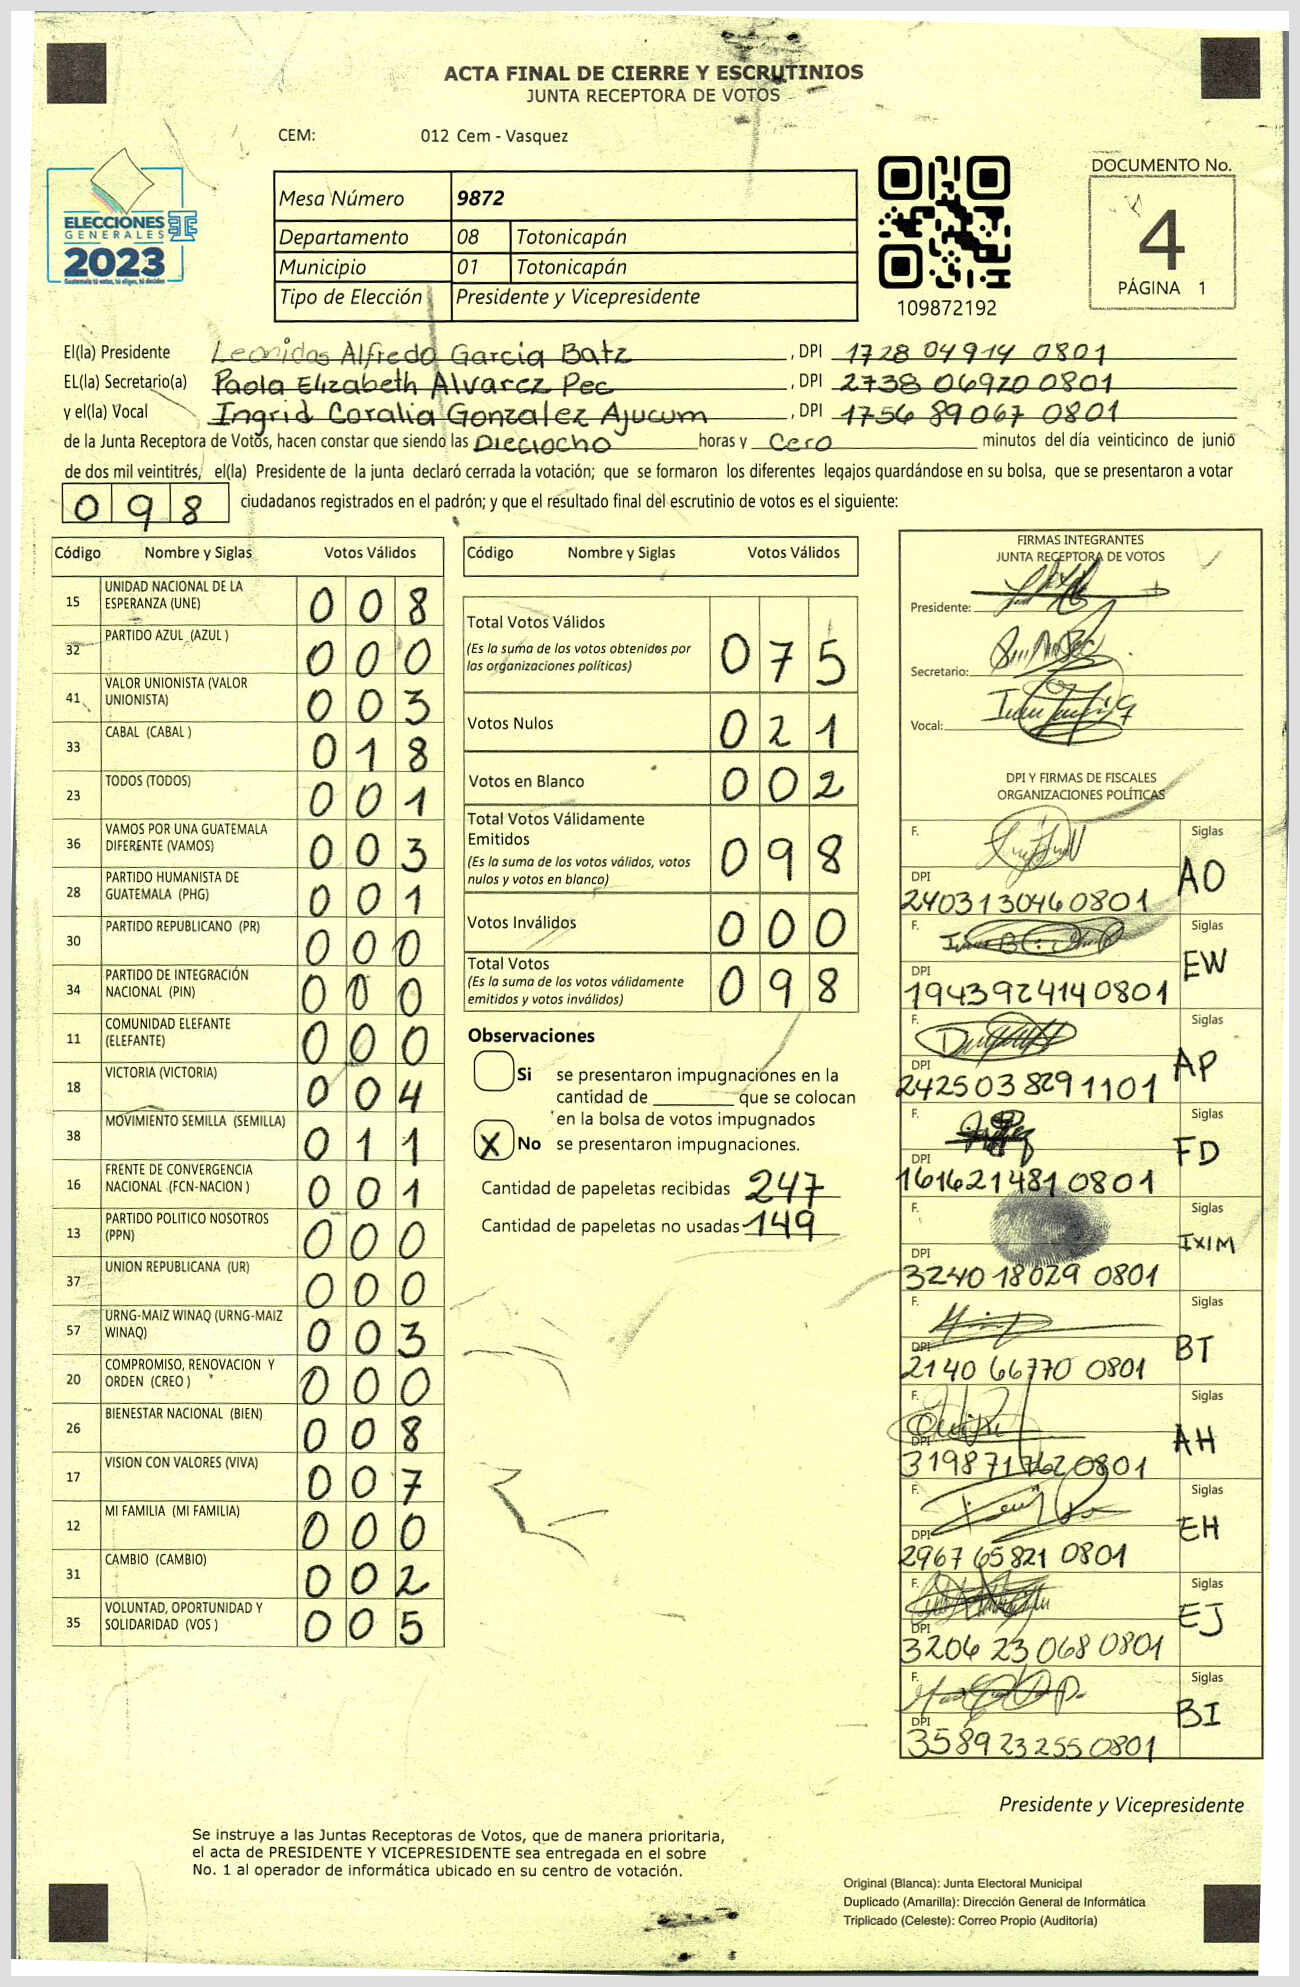 ACTA FINAL DE CIERRE Y ESCRUTINIOS
JUNTA RECEPTORA DE VOTOS
CEM: 012 Cem - Vasquez
ELECCIONES
GENERALES
2023
Guatemala tú votas, tú eliges, tú decides
Mesa Número 9872
Departamento 08 Totonicapán
Municipio 01 Totonicapán
Tipo de Elección Presidente y Vicepresidente
109872192
DOCUMENTO No.
4
PÁGINA 1
El(la) Presidente Leonidas Alfredo Garcia Batz , DPI 1728 04914 0801
EL(la) Secretario(a) Paola Elizabeth Alvarez Pec , DPI 2738 06920 0801
y el(la) Vocal Ingrid Coralia Gonzalez Ajucum , DPI 1756 89067 0801
de la Junta Receptora de Votos, hacen constar que siendo las Dieciocho horas y cero minutos del día veinticinco de junio
de dos mil veintitrés, el(la) Presidente de la junta declaró cerrada la votación; que se formaron los diferentes legajos guardándose en su bolsa, que se presentaron a votar
098 ciudadanos registrados en el padrón; y que el resultado final del escrutinio de votos es el siguiente:
Código Nombre y Siglas Votos Válidos
15 UNIDAD NACIONAL DE LA ESPERANZA (UNE) 008
32 PARTIDO AZUL (AZUL ) 000
41 VALOR UNIONISTA (VALOR UNIONISTA) 003
33 CABAL (CABAL ) 018
23 TODOS (TODOS) 001
36 VAMOS POR UNA GUATEMALA DIFERENTE (VAMOS) 003
28 PARTIDO HUMANISTA DE GUATEMALA (PHG) 001
30 PARTIDO REPUBLICANO (PR) 000
34 PARTIDO DE INTEGRACIÓN NACIONAL (PIN) 000
11 COMUNIDAD ELEFANTE (ELEFANTE) 000
18 VICTORIA (VICTORIA) 004
38 MOVIMIENTO SEMILLA (SEMILLA) 011
16 FRENTE DE CONVERGENCIA NACIONAL (FCN-NACION ) 001
13 PARTIDO POLITICO NOSOTROS (PPN) 000
37 UNION REPUBLICANA (UR) 000
57 URNG-MAIZ WINAQ (URNG-MAIZ WINAQ) 003
20 COMPROMISO, RENOVACION Y ORDEN (CREO ) 000
26 BIENESTAR NACIONAL (BIEN) 008
17 VISION CON VALORES (VIVA) 007
12 MI FAMILIA (MI FAMILIA) 000
31 CAMBIO (CAMBIO) 002
35 VOLUNTAD, OPORTUNIDAD Y SOLIDARIDAD (VOS ) 005
Código Nombre y Siglas Votos Válidos
Total Votos Válidos 075
(Es la suma de los votos obtenidos por
las organizaciones políticas)
Votos Nulos 021
Votos en Blanco 002
Total Votos Válidamente
Emitidos 098
(Es la suma de los votos válidos, votos
nulos y votos en blanco)
Votos Inválidos 000
Total Votos 098
(Es la suma de los votos válidamente
emitidos y votos inválidos)
Observaciones
Si se presentaron impugnaciones en la
cantidad de ________ que se colocan
en la bolsa de votos impugnados
X No se presentaron impugnaciones.
Cantidad de papeletas recibidas 247
Cantidad de papeletas no usadas 149
FIRMAS INTEGRANTES
JUNTA RECEPTORA DE VOTOS
Presidente:
Secretario:
Vocal:
DPI Y FIRMAS DE FISCALES
ORGANIZACIONES POLÍTICAS
F. Siglas
DPI AO
2403130460801
F. Siglas
DPI EW
1943924140801
F. Siglas
DPI AP
2425038291101
F. Siglas
DPI FD
1616214810801
F. Siglas
DPI IXIM
3240 18029 0801
F. Siglas
DPI BT
2140 66770 0801
F. Siglas
DPI AH
3198717620801
F. Siglas
DPI EH
2967 65821 0801
F. Siglas
DPI EJ
3206 23 068 0801
F. Siglas
DPI BI
3589232550801
Presidente y Vicepresidente
Se instruye a las Juntas Receptoras de Votos, que de manera prioritaria,
el acta de PRESIDENTE Y VICEPRESIDENTE sea entregada en el sobre
No. 1 al operador de informática ubicado en su centro de votación.
Original (Blanca): Junta Electoral Municipal
Duplicado (Amarilla): Dirección General de Informática
Triplicado (Celeste): Correo Propio (Auditoría)